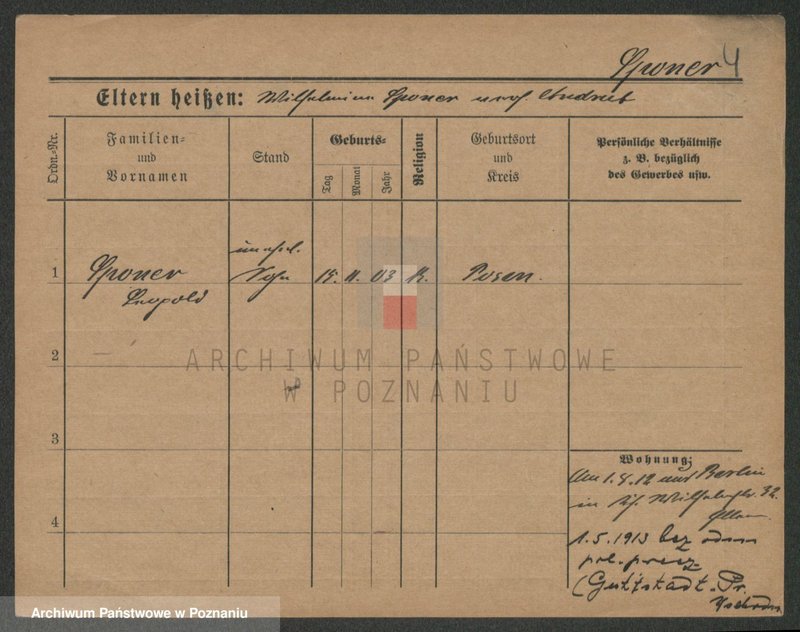 Sponer 4
Eltern heißen: Wilhelmine Sponer
Ordn.-Nr.
Familien-
und
Vornamen
Stand
Geburts-
Tag
Monat
Jahr
Religion
Geburtsort
und
Kreis
Persönliche Verhältnisse
z. B. bezüglich
des Gewerbes usw.
1 Sponer
Leopold
unehel.
Sohn
15. 11. 03 K. Posen.
2
3
4
ARCHIWUM PAŃSTWOWE
W POZNANIU
Wohnung:
Am 1.8.12 Berlin
in 32.
1.5.1913 bez
(Guttstadt. Pr.
Archiwum Państwowe w Poznaniu